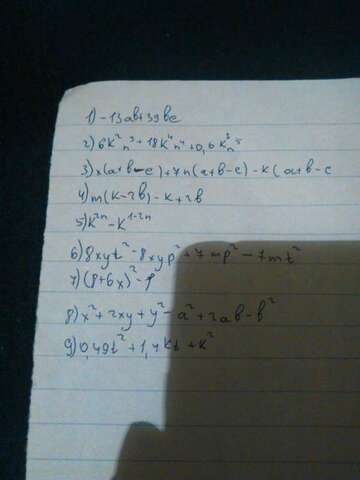 1) -13ab+39bc
2) 6k²n³+18k⁴n⁴+0,6k³n⁵
3) x(a+b-c)+7n(a+b-c)-k(a+b-c
4) m(k-2b)-k+2b
5) k²ⁿ-k¹⁻²ⁿ
6) 8xyt²-8xyp²+7mp²-7mt²
7) (8+6x)²-1
8) x²+2xy+y²-a²+2ab-b²
9) 0,49t²+1,4kt+k²